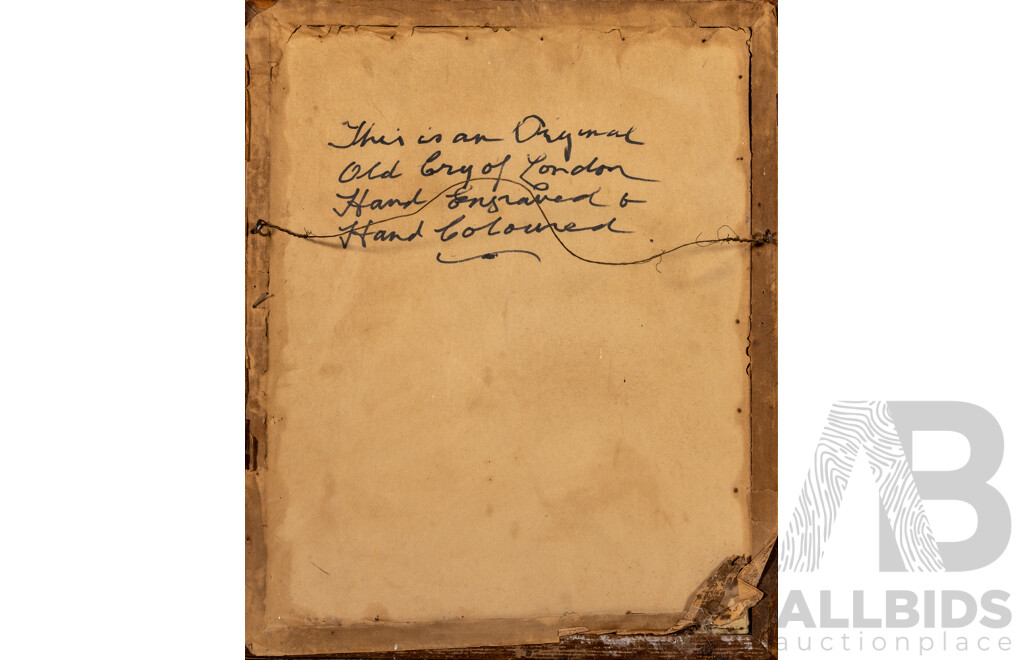 This is an Original
Old Cry of London
Hand Engraved &
Hand Coloured.
AB
ALLBIDS
auctionplace